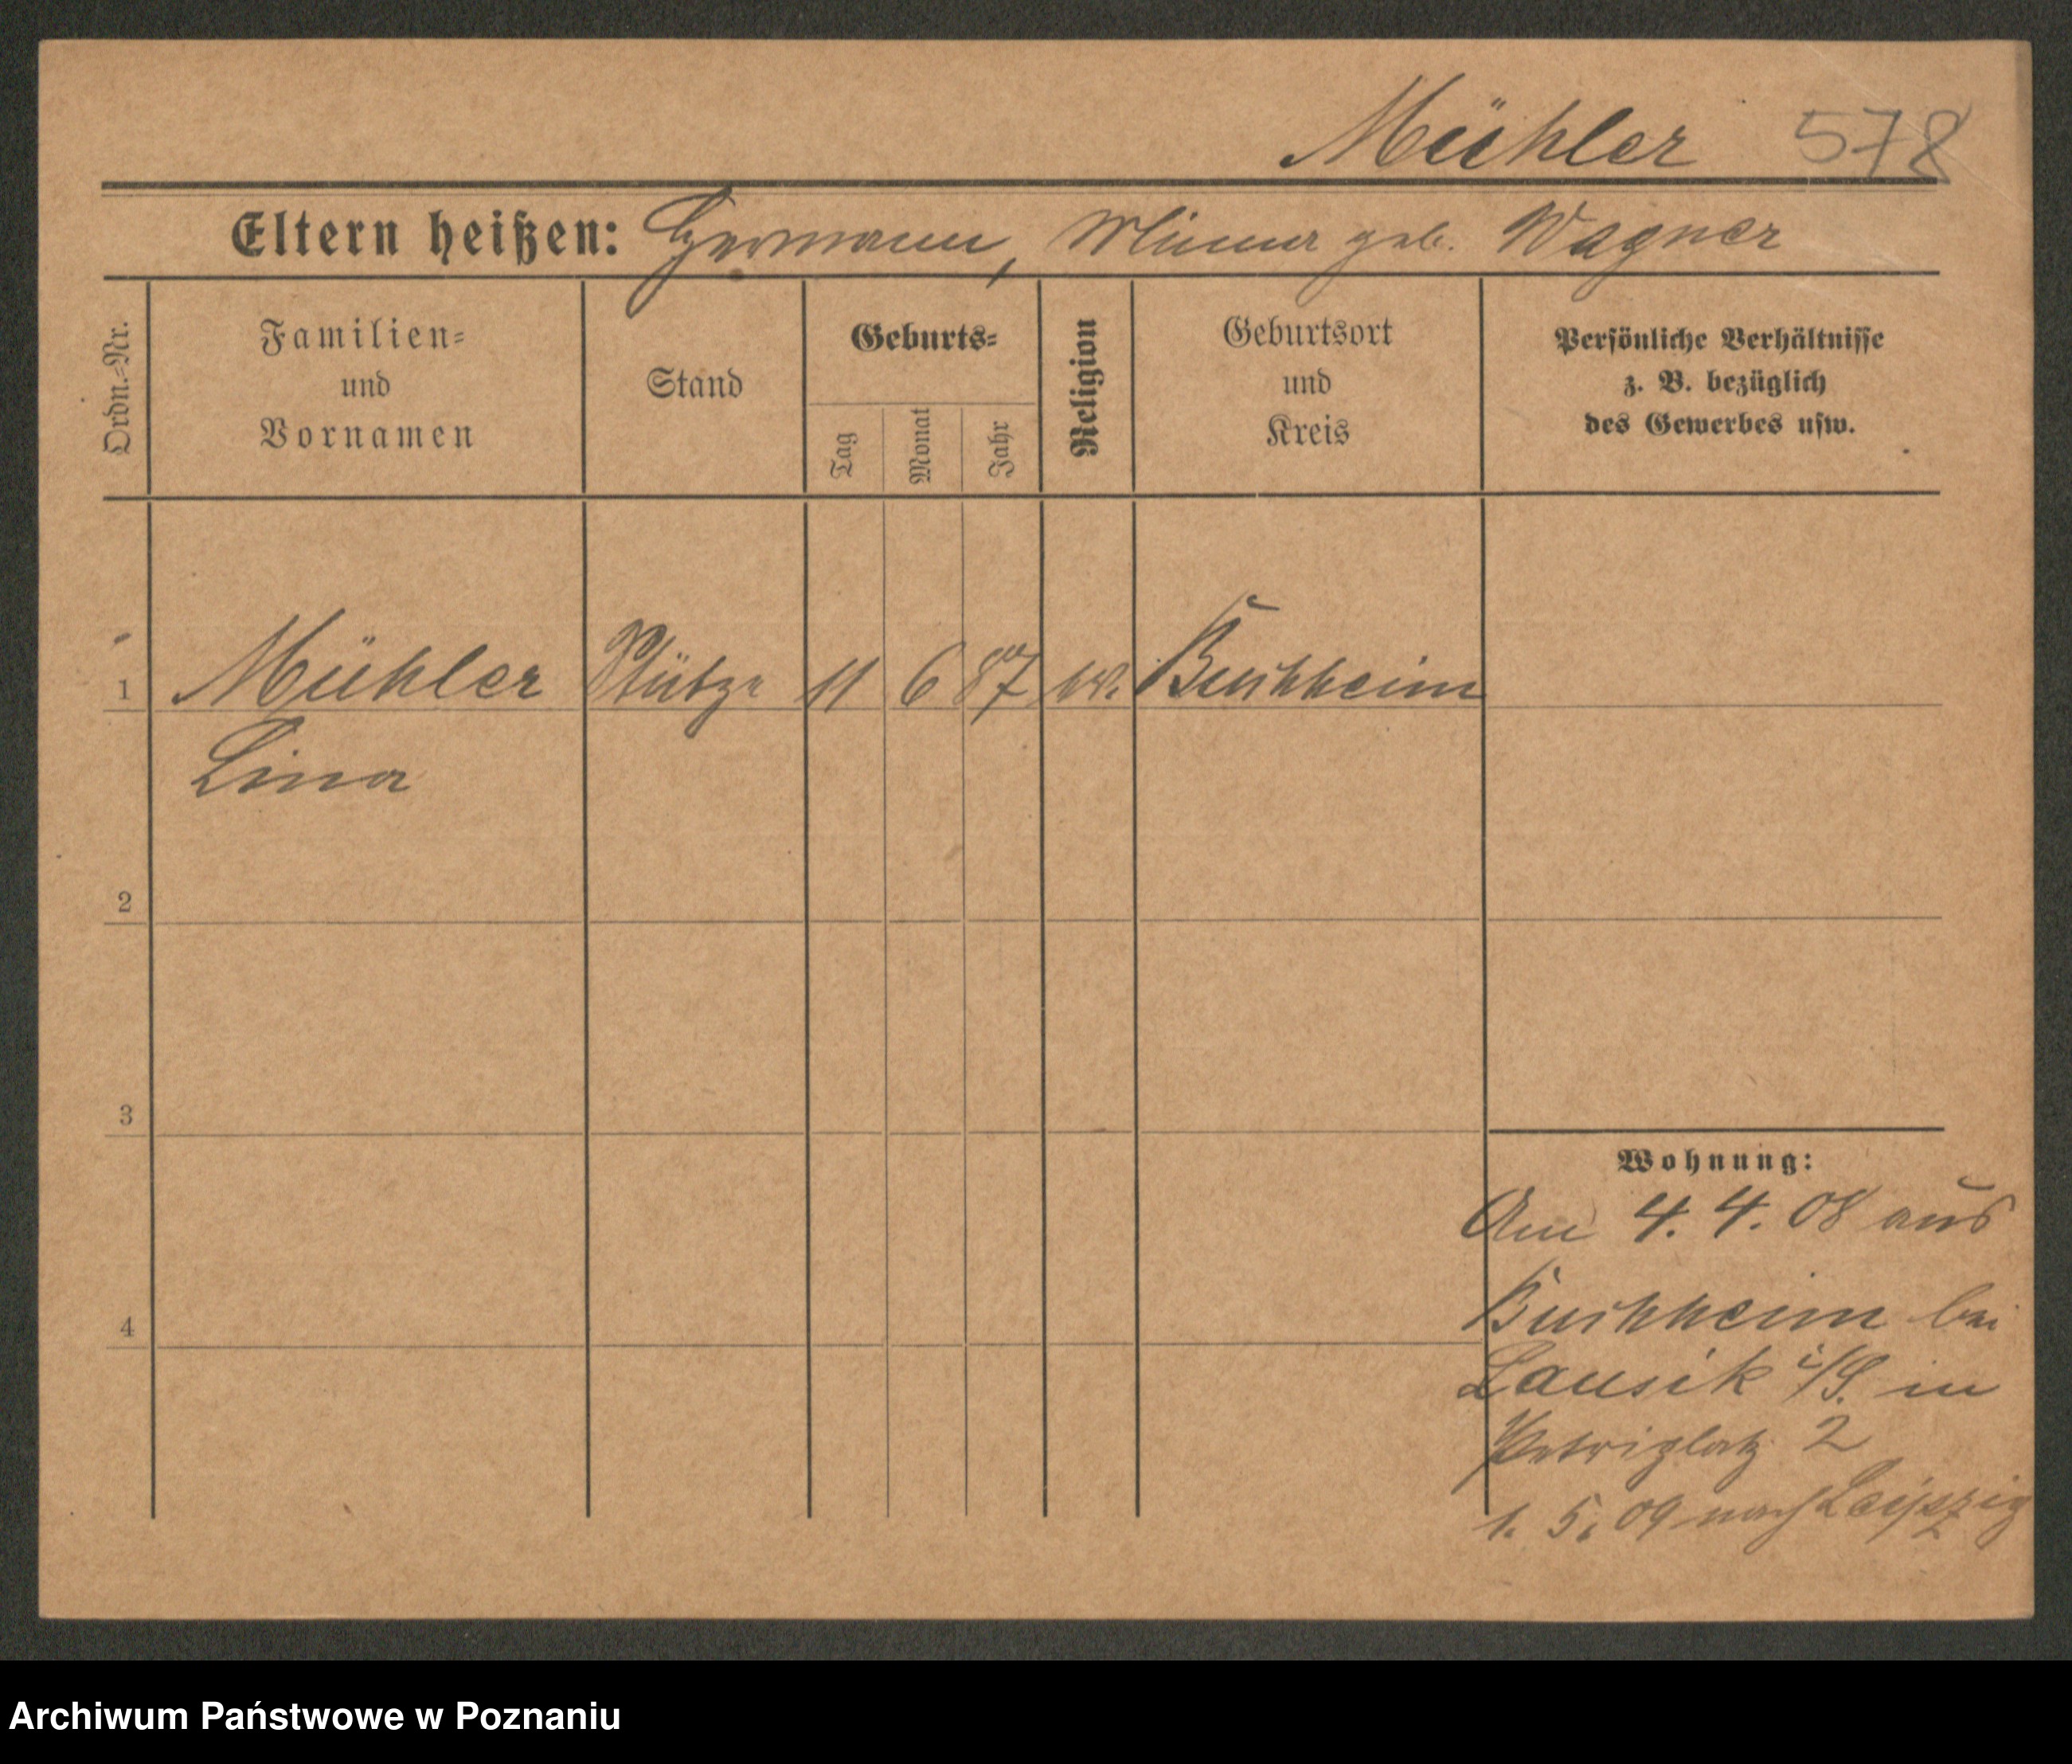 Mühler 578
Eltern heißen: Hermann, Minna geb. Wagner
Ordn.-Nr.
Familien-
und
Vornamen
Stand
Geburts-
Tag
Monat
Jahr
Religion
Geburtsort
und
Kreis
Persönliche Verhältnisse
z. B. bezüglich
des Gewerbes usw.
1 Mühler Stütze 11 6 87 ev. Buchheim
Lina
2
3
Wohnung:
Am 4. 4. 08 aus
4
Buchheim bei
Lausik i/S. in
Petriplatz 2
1. 5. 09 nach Leipzig
Archiwum Państwowe w Poznaniu